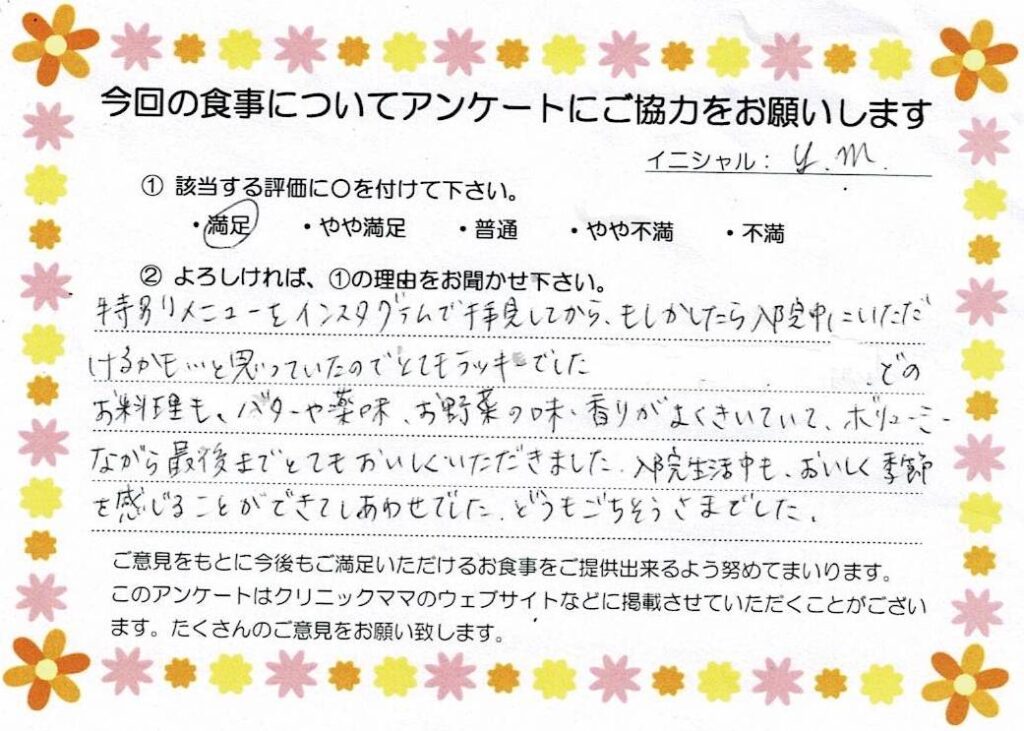 今回の食事についてアンケートにご協力をお願いします
イニシャル： y. m.
① 該当する評価に〇を付けて下さい。
・満足 ・やや満足 ・普通 ・やや不満 ・不満
② よろしければ、①の理由をお聞かせ下さい。
特別メニューをインスタグラムで拝見してから、もしかしたら入院中にいただ
けるかも…と思っていたのでとてもラッキーでした どの
お料理も、バターや薬味、お野菜の味・香りがよくきいていて、ボリューミー
ながら最後までとてもおいしくいただきました。入院生活中も、おいしく季節
を感じることができてしあわせでした。どうもごちそうさまでした。
ご意見をもとに今後もご満足いただけるお食事をご提供出来るよう努めてまいります。
このアンケートはクリニックママのウェブサイトなどに掲載させていただくことがござい
ます。たくさんのご意見をお願い致します。